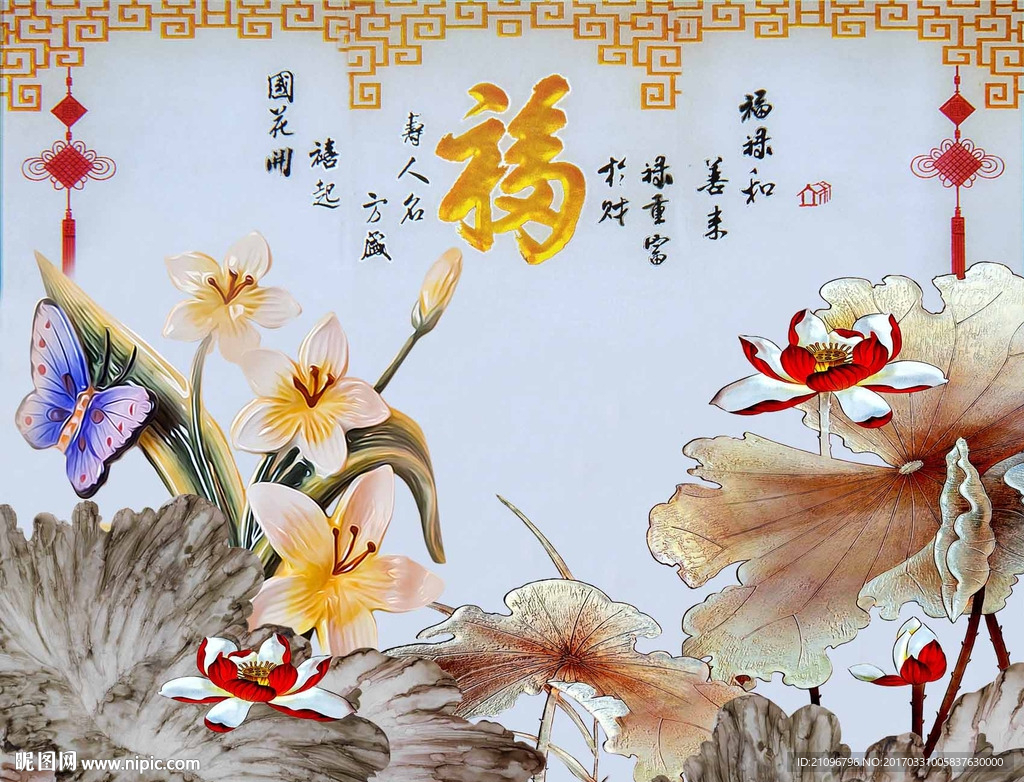 福禄和
善来
禄重富
於财
福
寿人名
方盛
禧起
國花開
昵图网 www.nipic.com
ID:21096796 NO:20170331005837630000